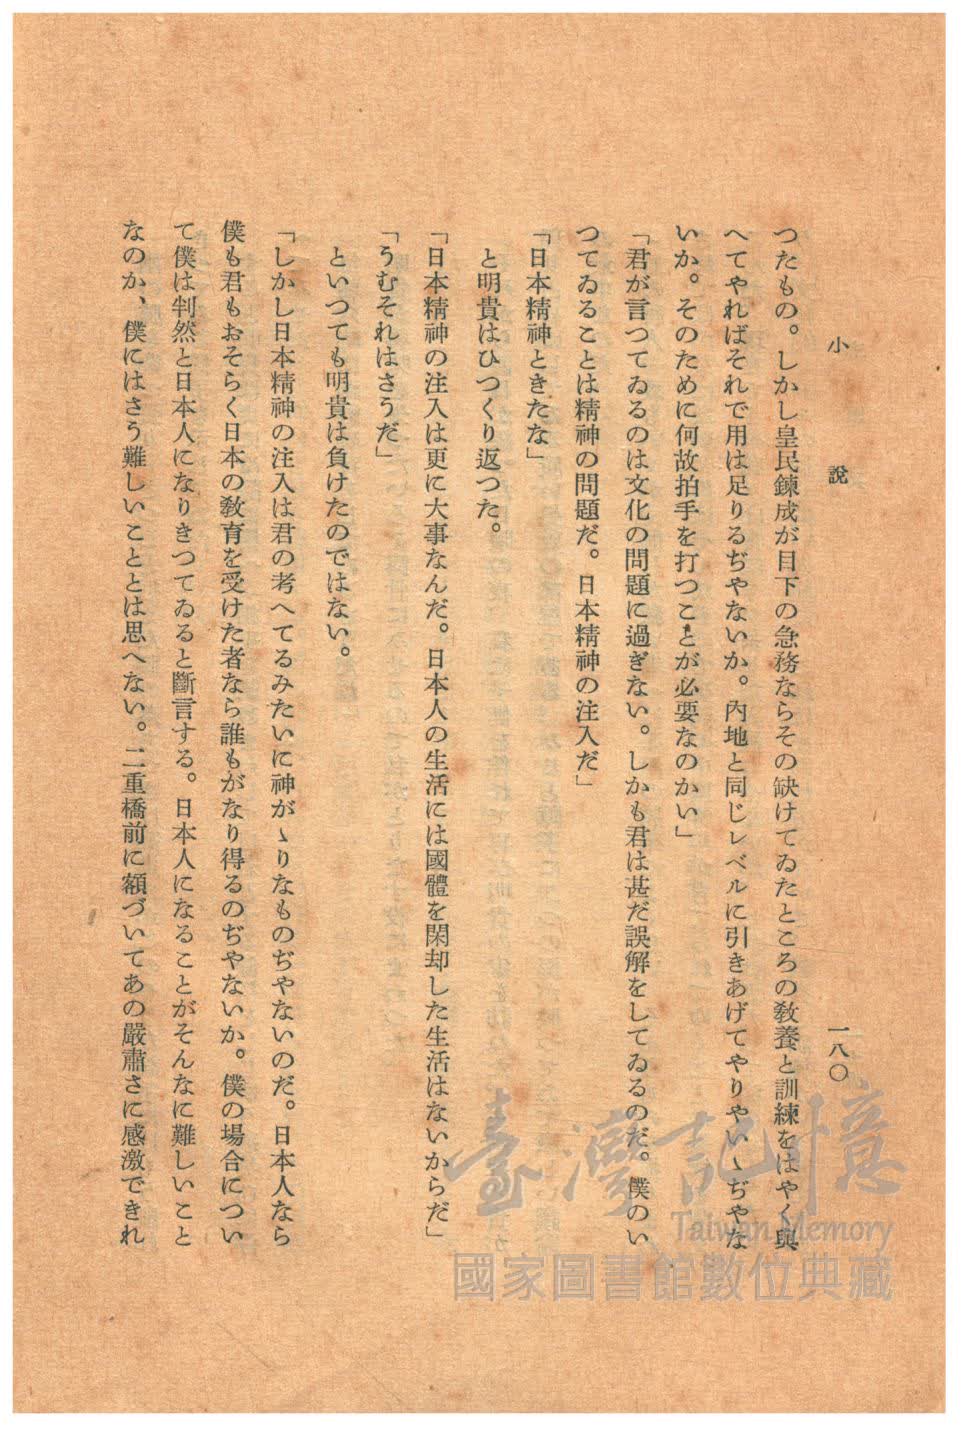 小說
一八〇
つたもの。しかし皇民鍊成が目下の急務ならその缺けてゐたところの敎養と訓練をはやく與
へてやればそれで用は足りるぢやないか。內地と同じレベルに引きあげてやりやいゝぢやな
いか。そのために何故拍手を打つことが必要なのかい」
「君が言つてゐるのは文化の問題に過ぎない。しかも君は甚だ誤解をしてゐるのだ。僕のい
つてゐることは精神の問題だ。日本精神の注入だ」
「日本精神ときたな」
と明貴はひつくり返つた。
「日本精神の注入は更に大事なんだ。日本人の生活には國體を閑却した生活はないからだ」
「うむそれはさうだ」
といつても明貴は負けたのではない。
「しかし日本精神の注入は君の考へてるみたいに神がゝりなものぢやないのだ。日本人なら
僕も君もおそらく日本の敎育を受けた者なら誰もがなり得るのぢやないか。僕の場合につい
て僕は判然と日本人になりきつてゐると斷言する。日本人になることがそんなに難しいこと
なのか、僕にはさう難しいこととは思へない。二重橋前に額づいてあの嚴肅さに感激できれ
臺灣記憶
Taiwan Memory
國家圖書館數位典藏